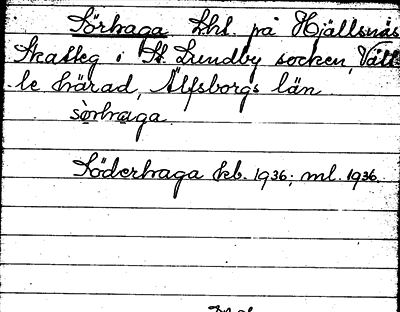 Sörhaga lht. på Hjällsnäs
Skatteg i St. Lundby socken, Vätt-
le härad, Älfsborgs län
sòrhaga
Söderhaga kb. 1936; ml. 1936.